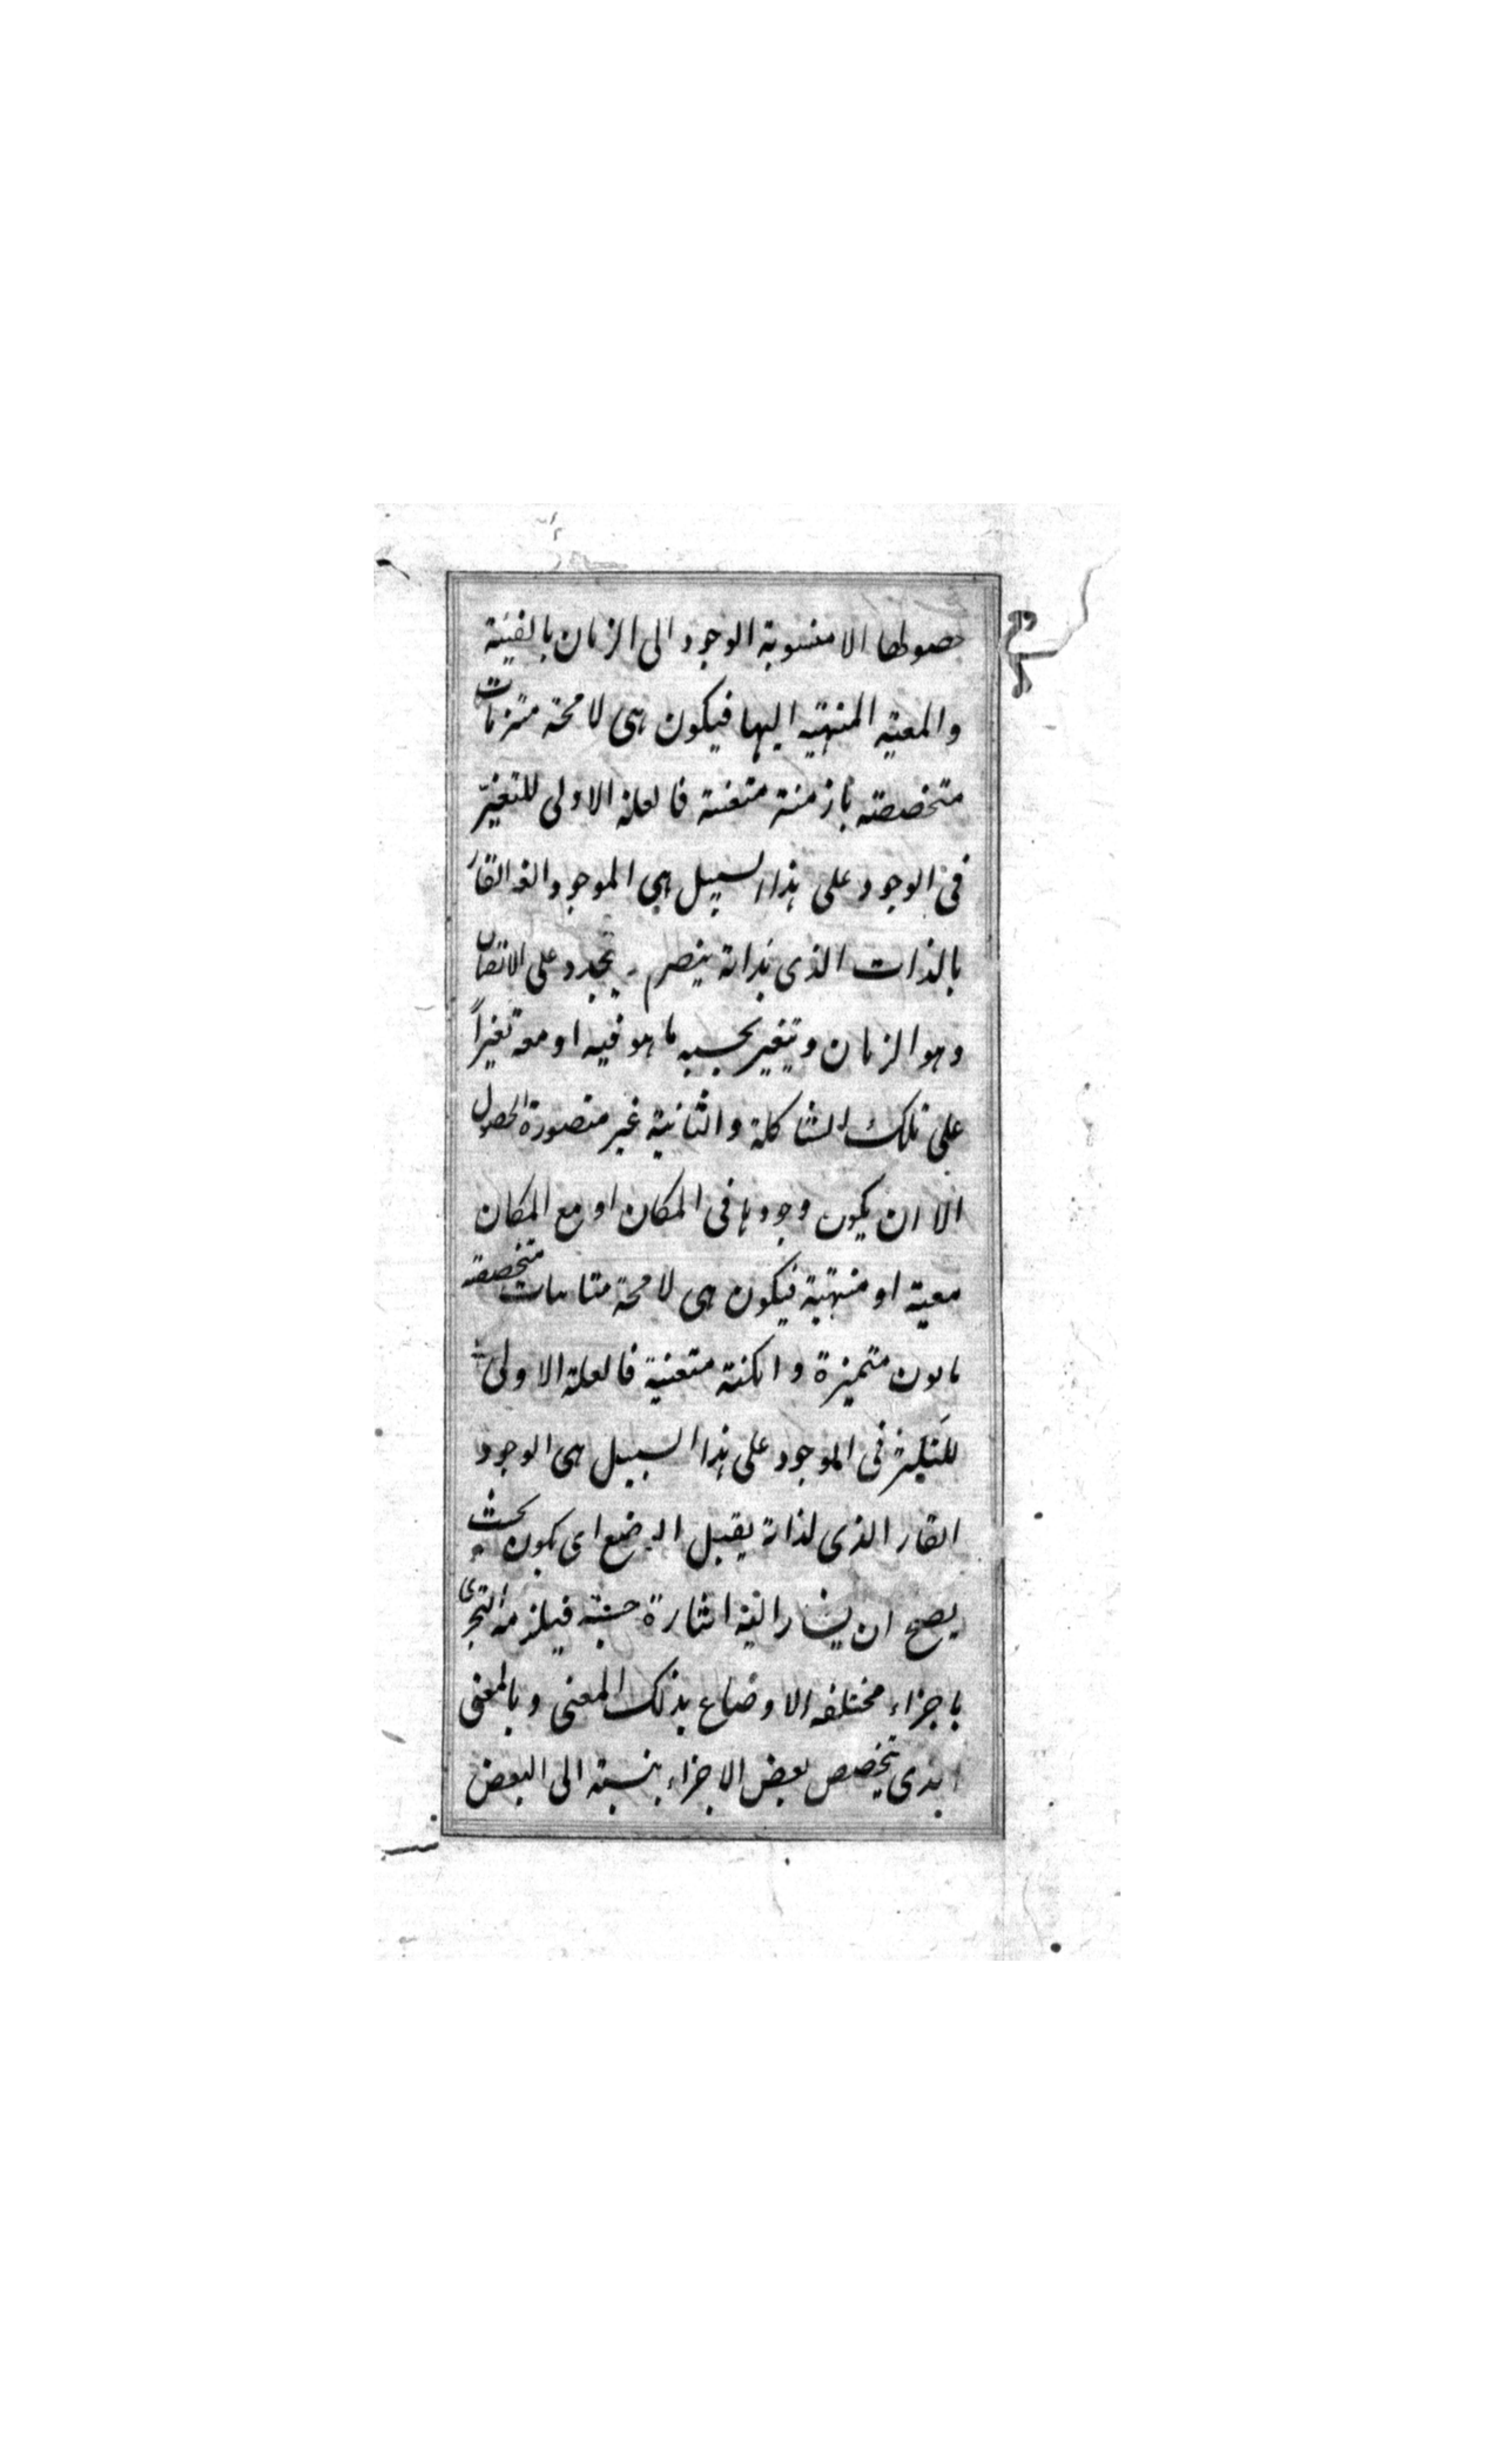 حصولها الا منسوبة الوجود الى الزمان بالفيئة
والمعية المنتهية اليها فيكون هى لا محة متزمنات
متخصصة بازمنة متعينة فالعلة الاولى للتغير
فى الوجود على هذا السبيل هى الموجود الغير القار
بالذات الذى بذاته ينصرم و يتجدد على الاتصال
وهو الزمان ويتغير بحسبه ما هو فيه او معه تغيراً
على تلك الشاكلة والثانية غير متصورة الحصول
الا ان يكون وجودها فى المكان او مع المكان
معية او منتهية فيكون هى لا محة متخصصة
متميزة وامكنة متعينة فالعلة الاولى
للتكثر فى الموجود على هذا السبيل هى الوجود
القار الذى لذاته يقبل الوضع اى يكون بحيث
يصح ان يشار اليه اشارة حسية فيلزمه التجزى
باجزاء مختلفه الاوضاع بذلك المعنى وبالمعنى
الذى يخصص بعض الاجزاء بنسبة الى البعض